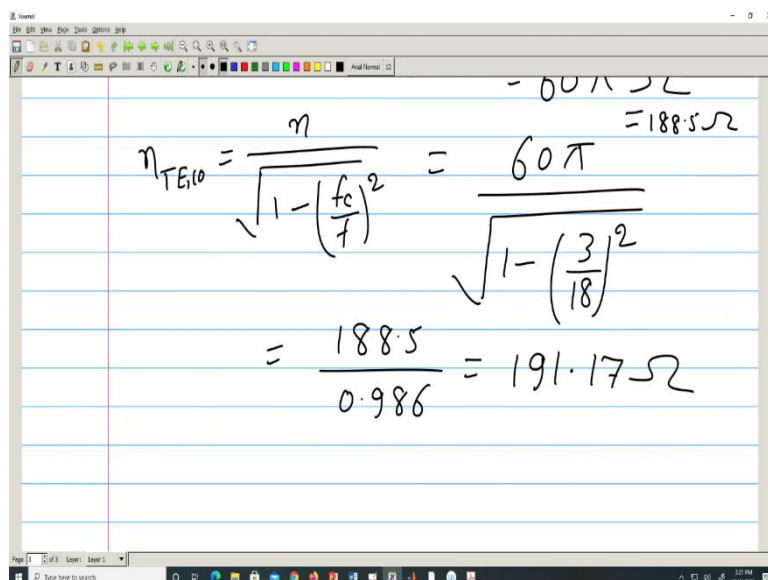 Xournal
File Edit View Page Tools Options Help
Arial Normal 12
- 60π Ω
= 188.5 Ω
η TE,10 = η / √(1 - (fc/f)²) = 60π / √(1 - (3/18)²)
= 188.5 / 0.986 = 191.17 Ω
Page 3 of 3 Layer: Layer 1
Type here to search
3:21 PM